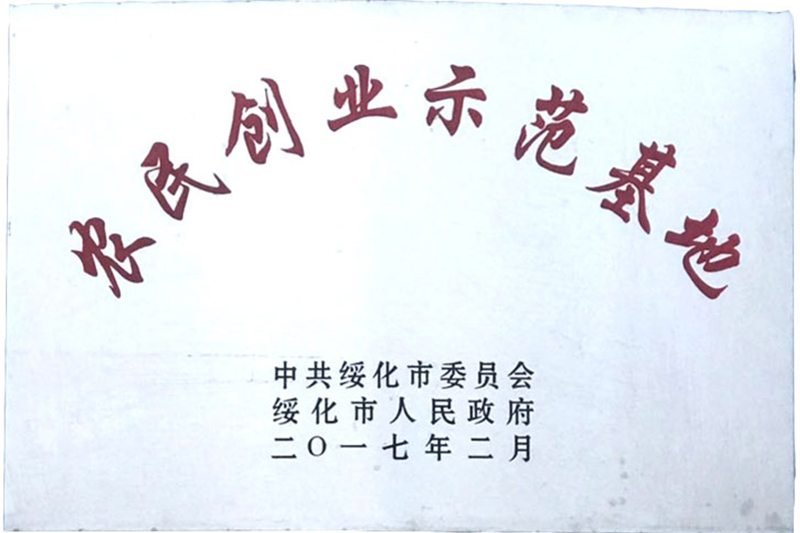 农民创业示范基地
中共绥化市委员会
绥化市人民政府
二〇一七年二月